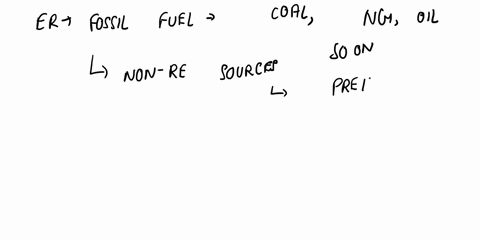 ER → FOSSIL FUEL → COAL, NG, OIL
↳ NON-RE SOURCES SOON
↳ PREI